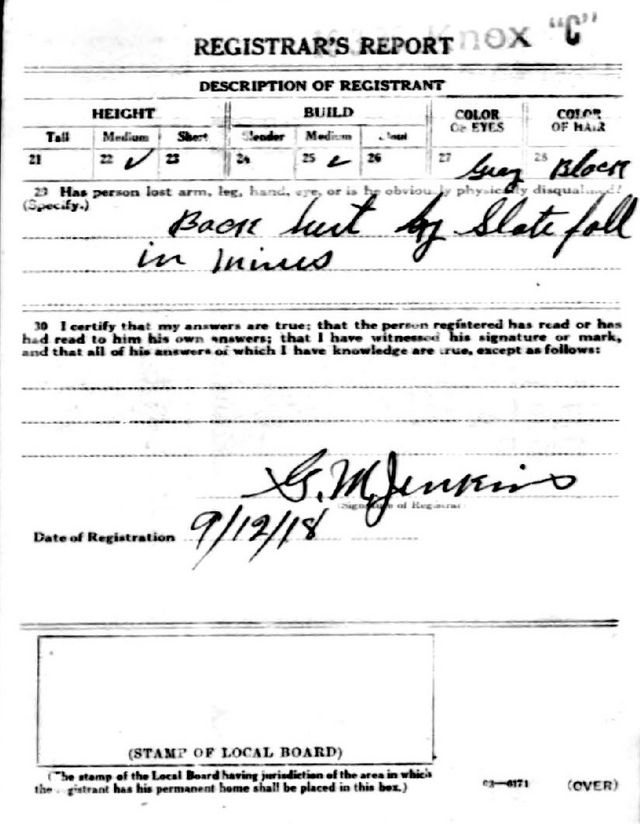 REGISTRAR'S REPORT Knox "C"
DESCRIPTION OF REGISTRANT
HEIGHT BUILD COLOR OF EYES COLOR OF HAIR
Tall Medium Short Slender Medium Stout
21 22 ✓ 23 24 25 ✓ 26 27 Gray 28 Black
29 Has person lost arm, leg, hand, eye, or is he obviously physically disqualified?
(Specify.)
Back hurt by Slate fall
in mines
30 I certify that my answers are true; that the person registered has read or has
had read to him his own answers; that I have witnessed his signature or mark,
and that all of his answers of which I have knowledge are true, except as follows:
G. M. Jenkins
(Signature of Registrar)
Date of Registration 9/12/18
(STAMP OF LOCAL BOARD)
(The stamp of the Local Board having jurisdiction of the area in which
the registrant has his permanent home shall be placed in this box.)
03—6171 (OVER)